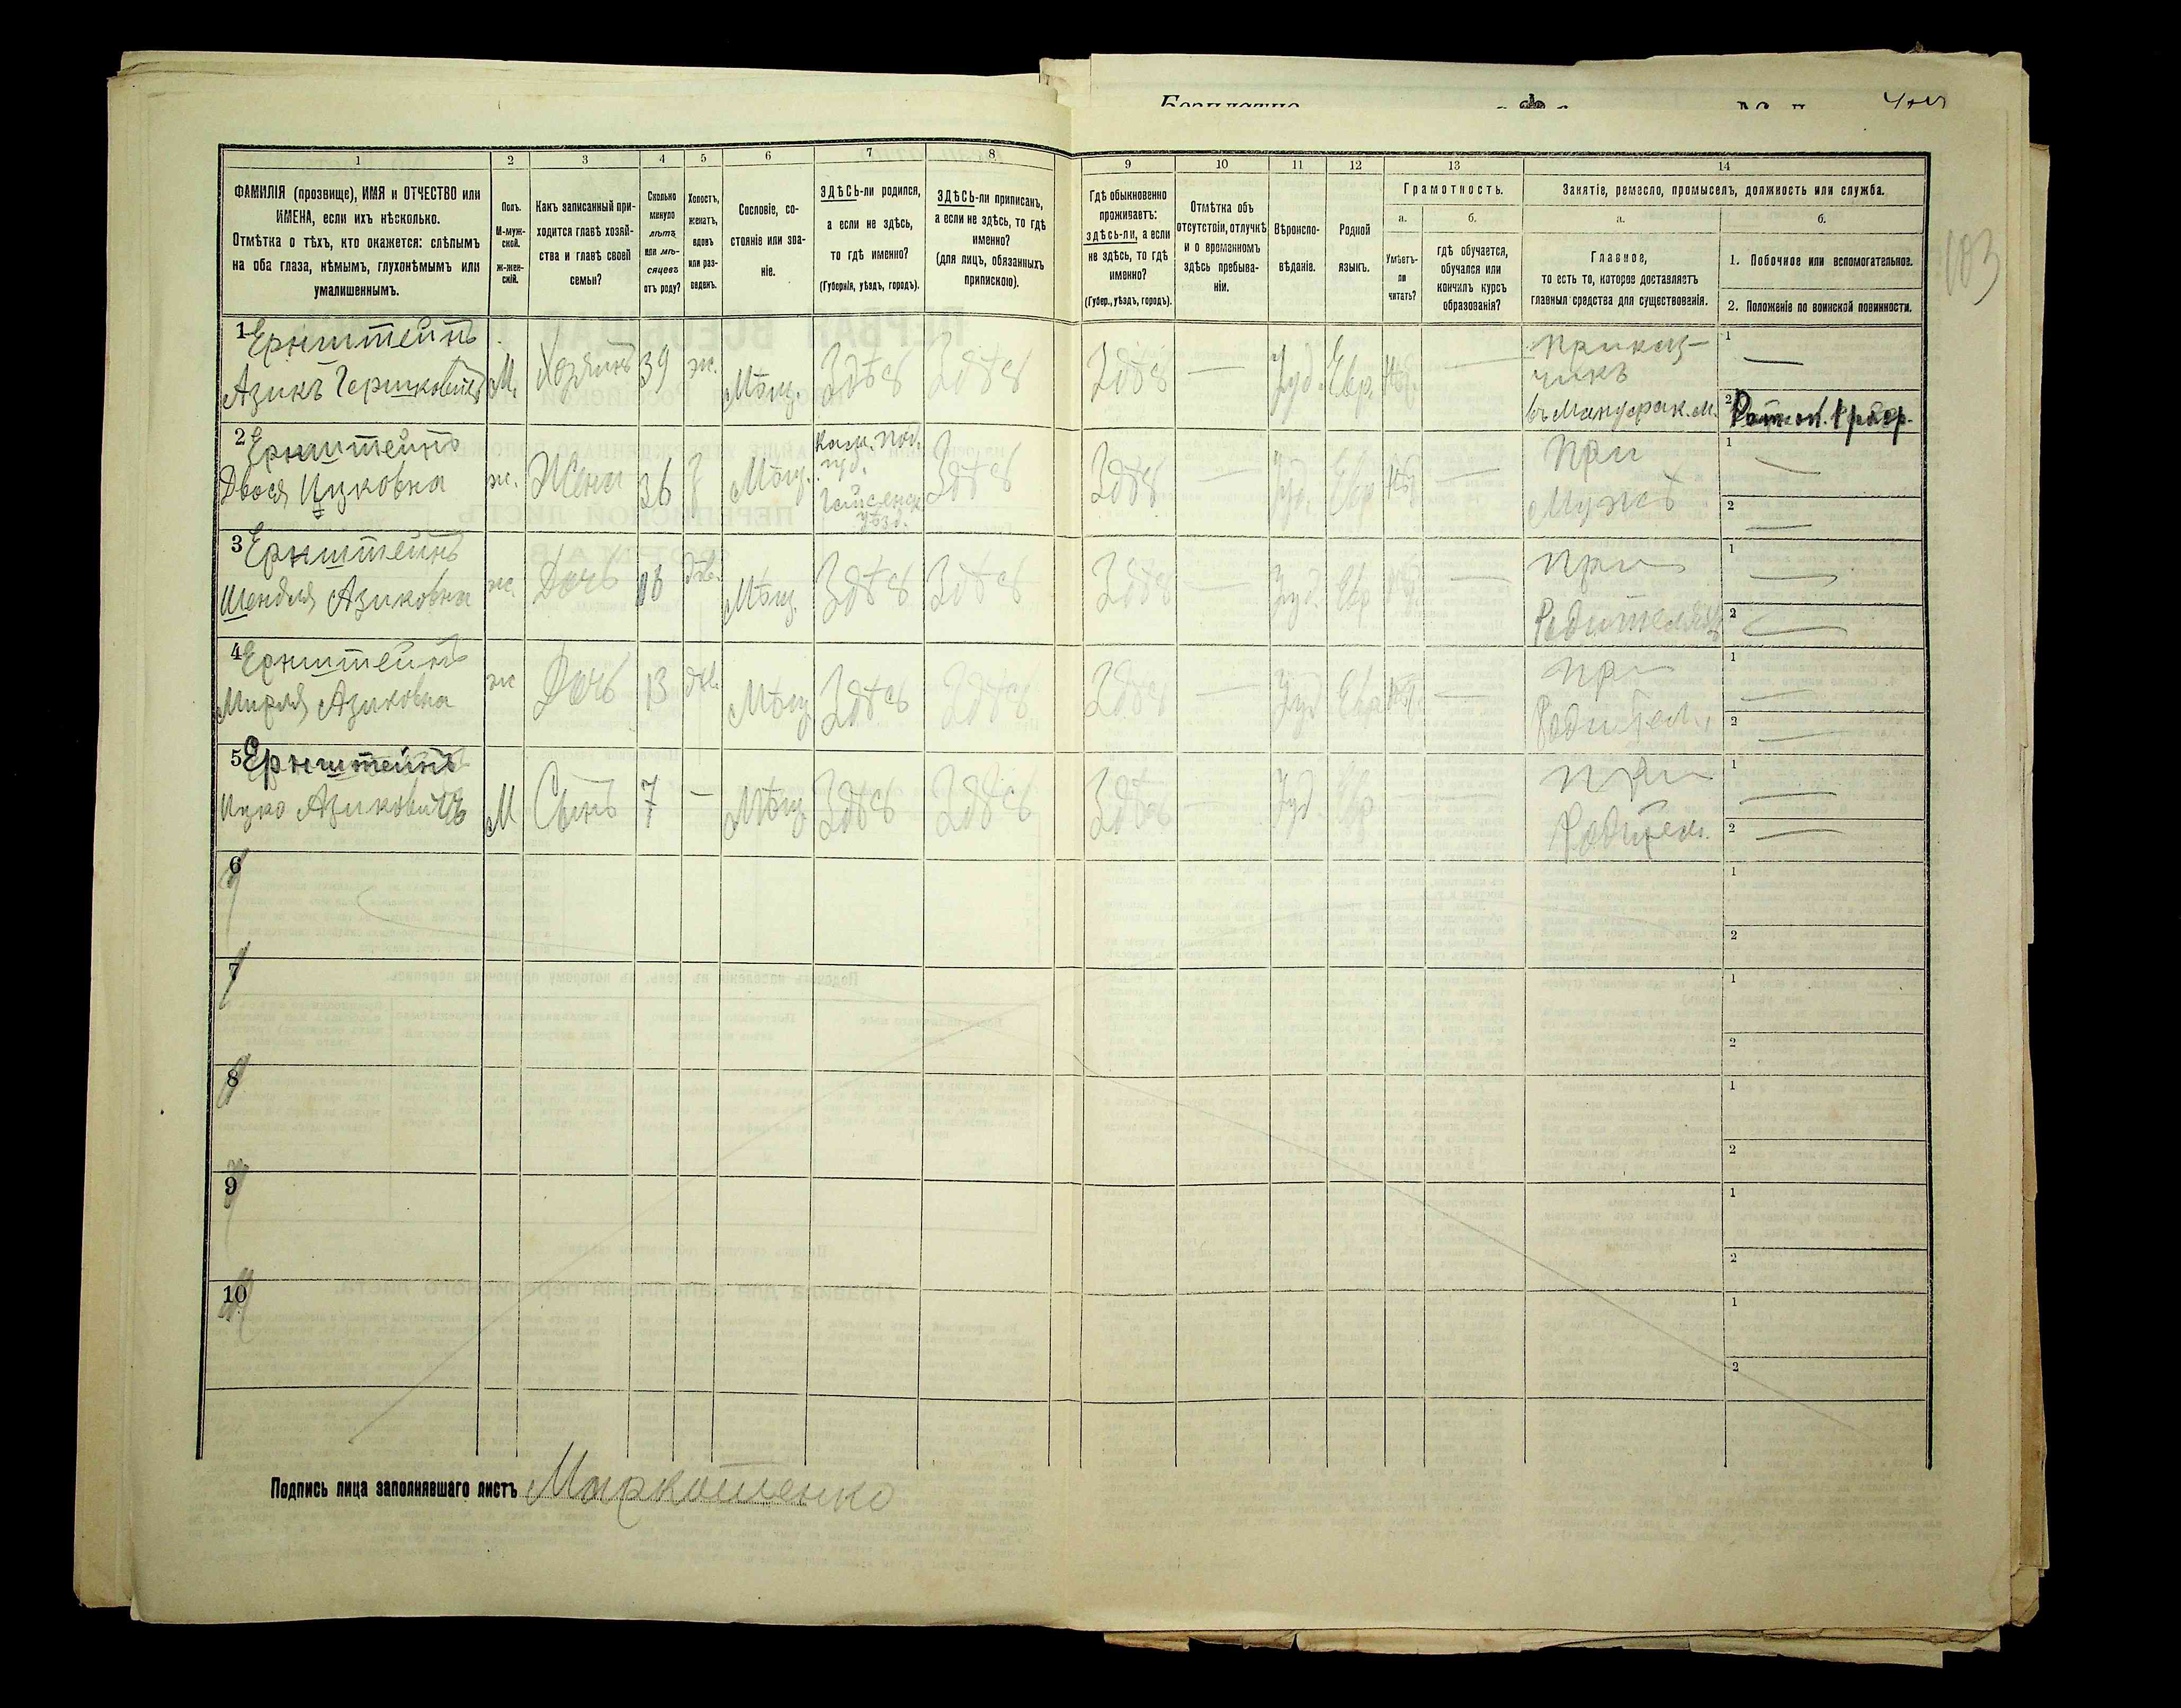 103
1
2
3
4
5
6
7
8
9
10
11
12
13
14
ФАМИЛІЯ (прозвище), ИМЯ и ОТЧЕСТВО или
ИМЕНА, если ихъ нѣсколько.
Отмѣтка о тѣхъ, кто окажется: слѣпымъ
на оба глаза, нѣмымъ, глухонѣмымъ или
умалишеннымъ.
Полъ.
М-муж-
ской.
ж-жен-
скій.
Какъ записанный при-
ходится главѣ хозяй-
ства и главѣ своей
семьи?
Сколько
минуло
лѣтъ
или мѣ-
сяцевъ
отъ роду?
Холостъ,
женатъ,
вдовъ
или раз-
веденъ.
Сословіе, со-
стояніе или зва-
ніе.
ЗДѢСЬ-ли родился,
а если не здѣсь,
то гдѣ именно?
(Губернія, уѣздъ, городъ).
ЗДѢСЬ-ли приписанъ,
а если не здѣсь, то гдѣ
именно?
(для лицъ, обязанныхъ
припискою).
Гдѣ обыкновенно
проживаетъ:
здѣсь-ли, а если
не здѣсь, то гдѣ
именно?
(Губер., уѣздъ, городъ).
Отмѣтка объ
отсутствіи, отлучкѣ
и о временномъ
здѣсь пребыва-
ніи.
Вѣроиспо-
вѣданіе.
Родной
языкъ.
Грамотность.
а.
Умѣетъ-
ли
читать?
б.
гдѣ обучается,
обучался или
кончилъ курсъ
образованія?
Занятіе, ремесло, промыселъ, должность или служба.
а.
Главное,
то есть то, которое доставляетъ
главныя средства для существованія.
б.
1. Побочное или вспомогательное.
2. Положеніе по воинской повинности.
1 Ернштейнъ
Азикъ Гершковичъ М. Хозяинъ 39 ж. Мѣщ. Здѣсь Здѣсь Здѣсь — Іуд. Евр. — Приказ-
чикъ
въ Мануфак. м.
1 —
2
2 Ернштейнъ
Двося Ицковна ж. Жена 36 Мѣщ. Кам. Под.
губ.
Гайсенск.
уѣзд.
Здѣсь Здѣсь — Іуд. Евр — При
Мужѣ
1 —
2 —
3 Ернштейнъ
Шендля Азиковна ж. Дочь 16 дѣв. Мѣщ. Здѣсь Здѣсь Здѣсь — Іуд. Евр — При
Родителяхъ
1 —
2 —
4 Ернштейнъ
Мирля Азиковна ж Дочь 13 дѣв. Мѣщ Здѣсь Здѣсь Здѣсь — Іуд Евр — При
Родител.
1 —
2 —
5 Ернштейнъ
Ицко Азиковичъ М Сынъ 7 — Мѣщ Здѣсь Здѣсь Здѣсь — Іуд. Евр — При
Родител.
1 —
2 —
6
1
2
7
1
2
8
1
2
9
1
2
10
1
2
Подпись лица заполнявшаго листъ Маркошенко